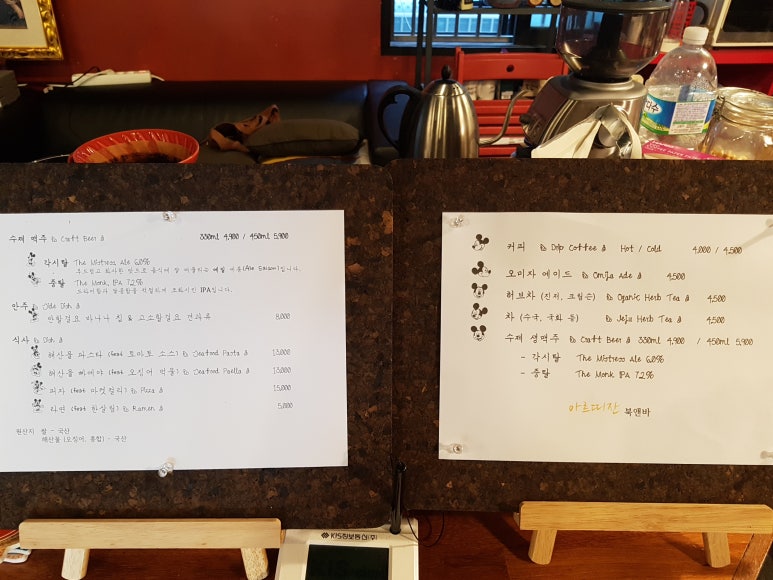 수제 맥주 & Craft Beer & 330ml 4,900 / 450ml 5,900
각시탈 The Mistress Ale 6.0%
- 부드럽고 화사한 맛으로 음식에 잘 어울리는 에일 (Ale Saison)입니다.
중탈 The Monk, IPA 7.2%
IPA입니다.
안주 & Side Dish &
안팔걸요 바나나 칩 & 고소할걸요 견과류 8,000
식사 & Dish &
해산물 파스타 (feat 토마토 소스) & Seafood Pasta & 13,000
해산물 빠에야 (feat 오징어 먹물) & Seafood Paella & 13,000
피자 (feat 마켓컬리) & Pizza & 15,000
라면 (feat 한살림) & Ramen & 5,000
원산지 쌀 - 국산
해산물 (오징어, 홍합) - 국산
커피 & Drip Coffee & Hot / Cold 4,000 / 4,500
오미자 에이드 & Omija Ade & 4,500
허브차 (진저, 크럴슨) & Oganic Herb Tea & 4,500
차 (수국, 국화 등) & Jeju Herb Tea & 4,500
수제 생맥주 & Craft Beer & 330ml 4,900 / 450ml 5,900
- 각시탈 The Mistress Ale 6.0%
- 중탈 The Monk IPA 7.2%
마르띠잔 북앤바
KIS정보통신(주)